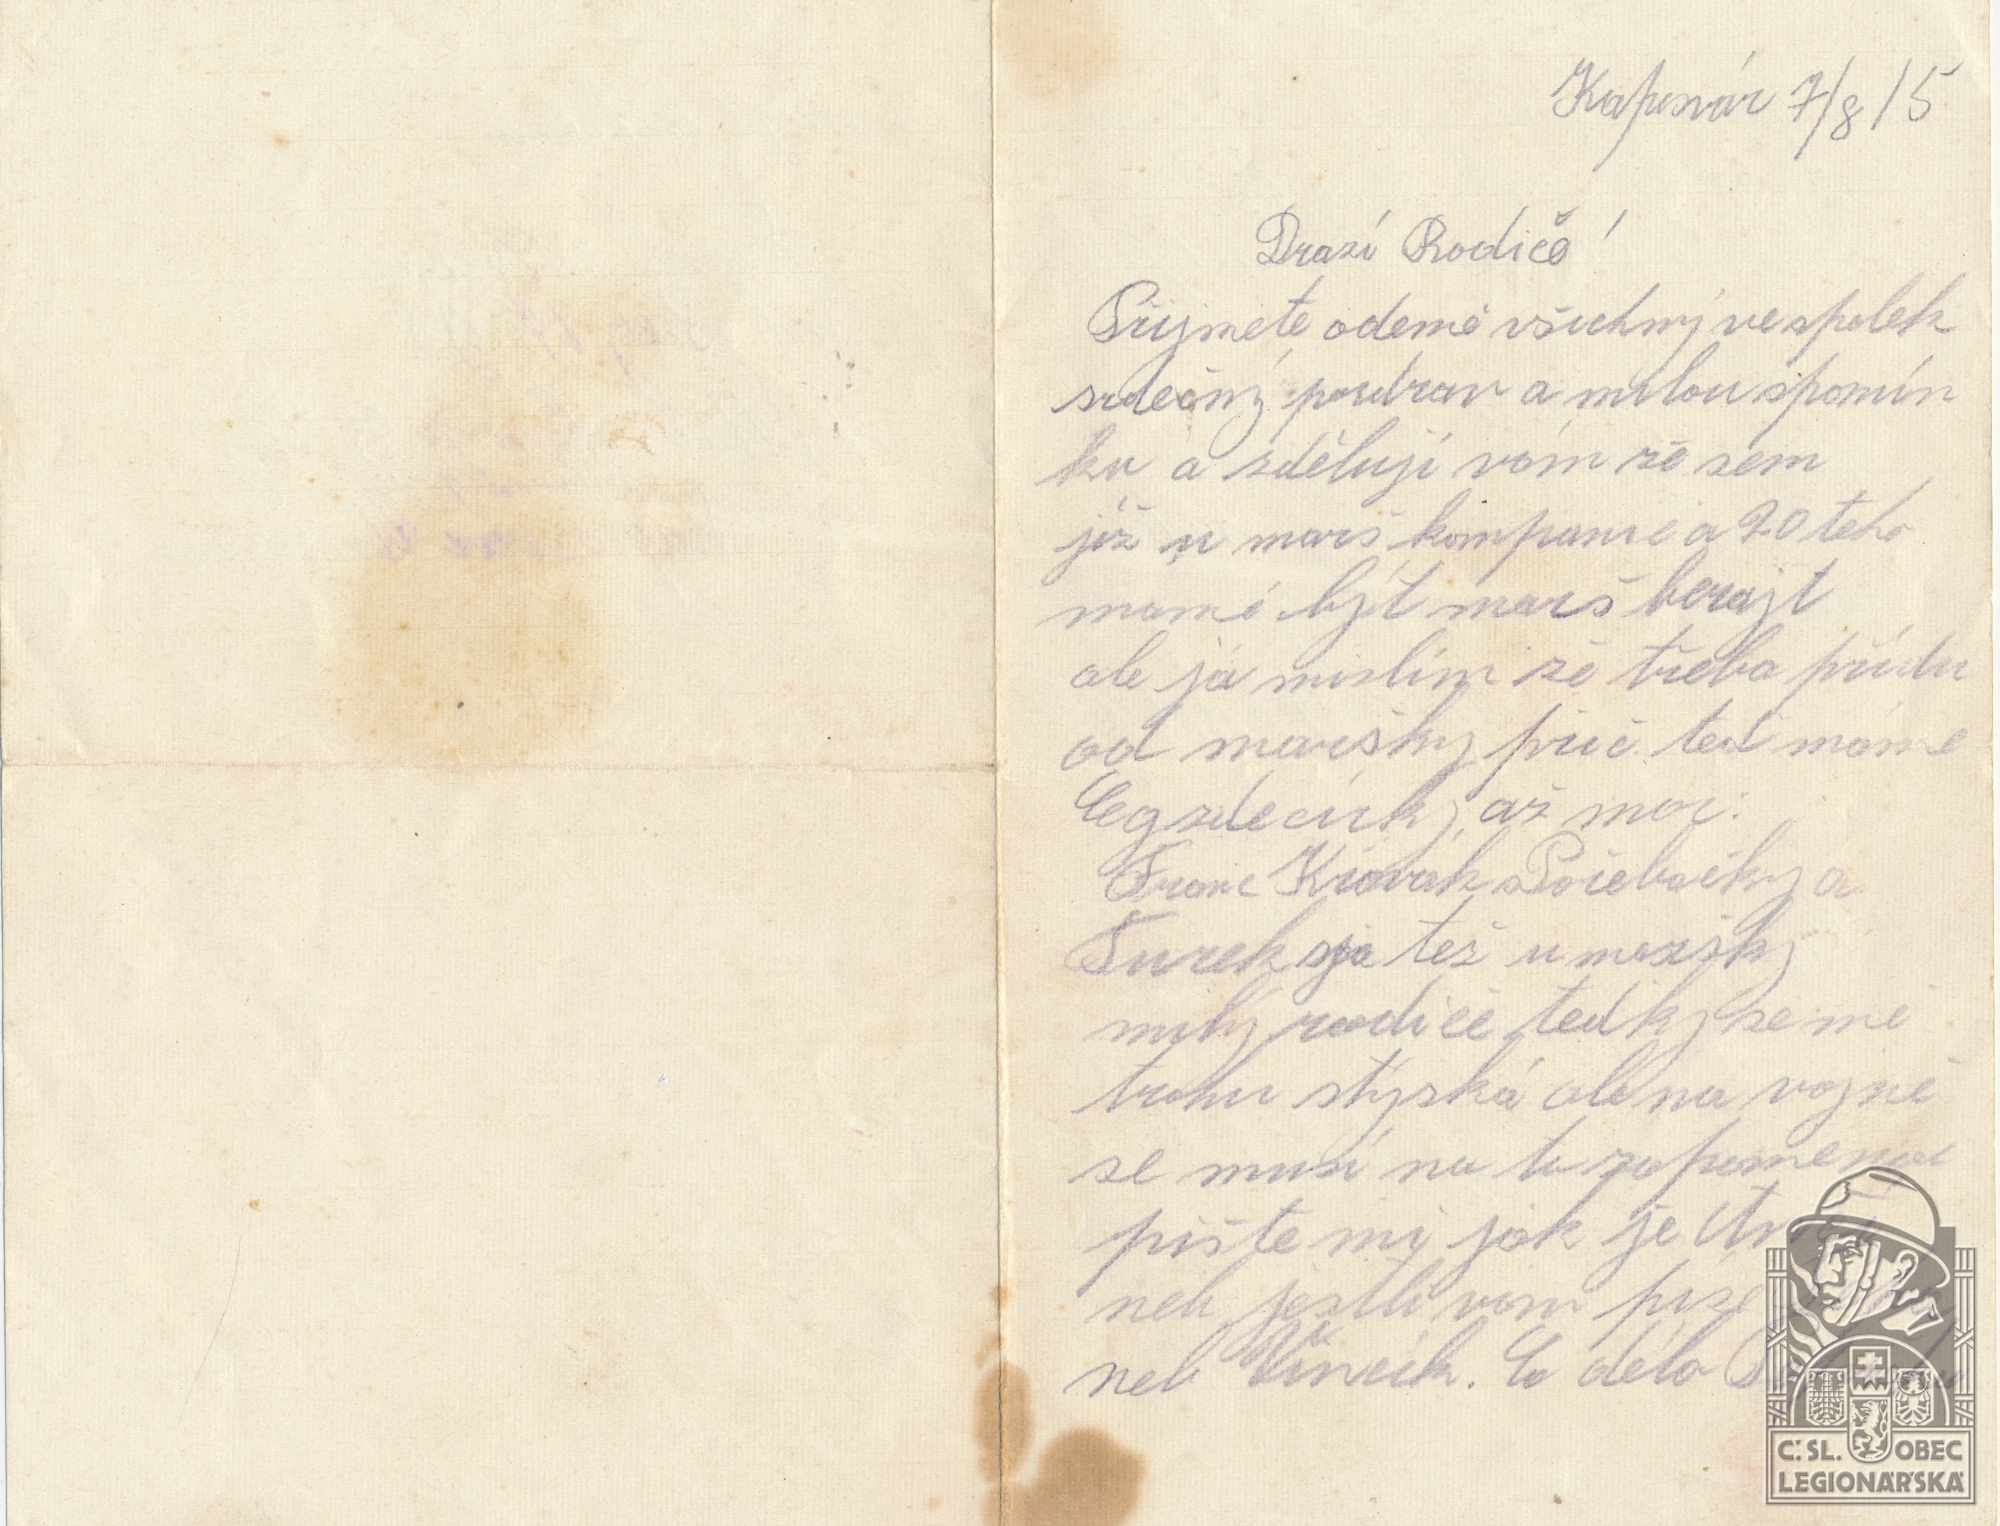 Kaposvár 7/8/15
Drazí Rodičé!
Přijmete odemě všichný ve spolek
srdečný pozdrav a milou spomín
ku a zdělují vám zě sem
jěž u marš kompanie a 20 teho
mamé být marš berajt
ale já mislím zě třeba přídu
od maršky přič teď máme
Cegzdecírky až moc.
Franc Křovák Pořebačky a
Turek sja též u maršky
milý rodičé tedky se mě
trohu stýská ale na vojně
se musí na to zapomenout
pište mi jak je
neb jestli vám píše
neb Vincek. Co děla
Č.SL. OBEC
LEGIONÁŘSKÁ